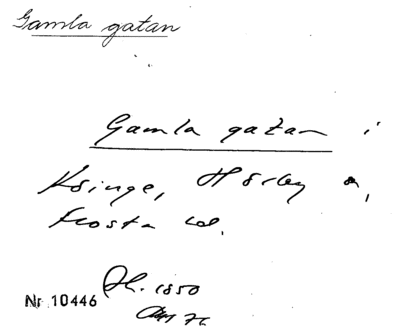 Gamla gatan
Gamla gatan i
Ksinge, Hörby sn,
Frosta hd.
Fl. 1850
Nr 10446